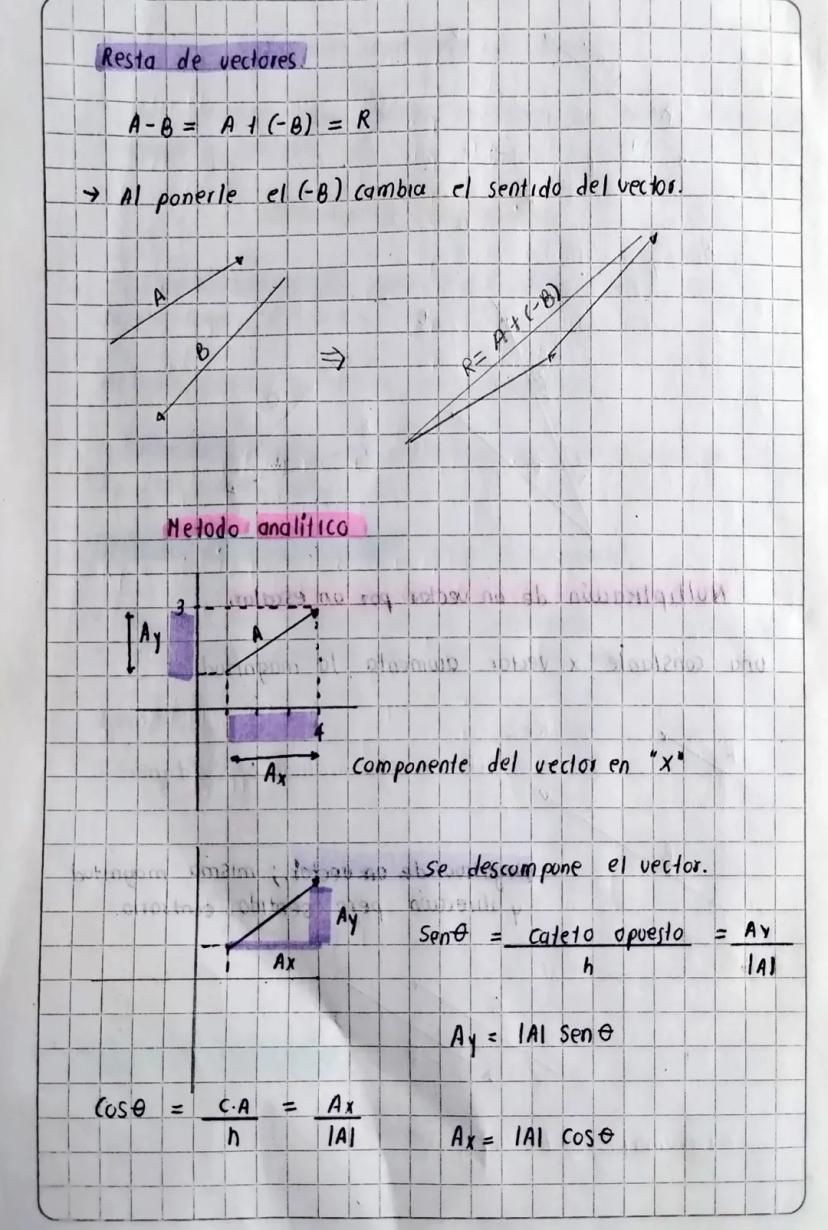 Resta de vectores
A - B = A + (-B) = R
→ Al ponerle el (-B) cambia el sentido del vector.
A
B
⇒
R = A + (-B)
Metodo analítico
3
Ay
A
4
Ax
componente del vector en "x"
se descompone el vector.
Ay
Ax
Senθ = cateto opuesto / h = Ay / |A|
Ay = |A| Sen θ
Cosθ = C.A / h = Ax / |A|
Ax = |A| cosθ